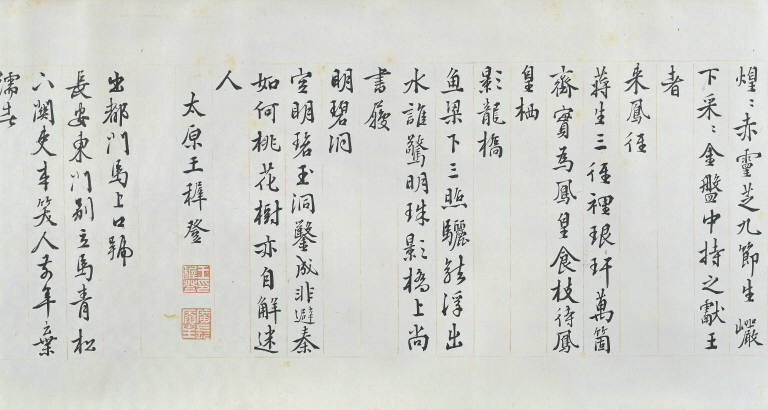 煌〻赤靈芝九節生巖
下采〻金盤中持之獻王
者
来鳳徑
蔣生三徑裡琅玕萬箇
齊實為鳳皇食枝待鳳
皇栖
影龍橋
魚梁下三照驪龍浮出
水誰驚明珠影橋上尚
書履
明碧洞
空明碧玉洞鑿成非避秦
如何桃花樹亦自解迷
人
太原王穉登
出都門馬上口號
長安東門別立馬青松
下關吏笑人前年棄